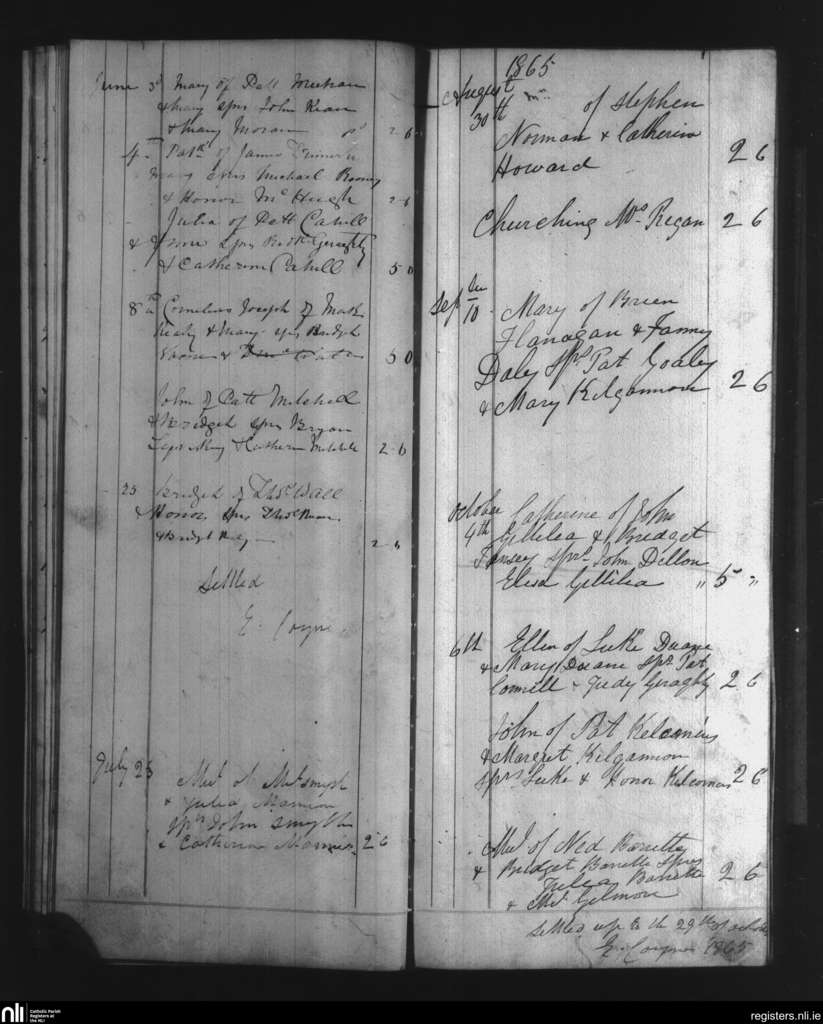 June 3d Mary of Patt Meehan
& Mary Sprs John Kean
& Mary Moran pd 2 6
4 Patk of James
Mary Sprs Michael Rooney
& Honor McHugh 2 6
Julia of Patt Cahill
& Sprs Geraghty
& Catherine Cahill 5 0
8th Cornelius Joseph of
Healy & Mary Sprs Bridget
& 5 0
John of Patt Mitchell
& Bridget Sprs Bryan
& Catherine Mitchell 2 6
25 Bridget of Thos Wall
& Honor Sprs Thos
& Bridget 2 6
Settled
E. Coyne
July 23
Mil of Mt Smyth
& Julia Mannion
Sprs John Smyth
& Catherine Mannion 2 6
1865
August
30th Mr of Stephen
Norman & Catherine
Howard 2 6
Churching Mrs Regan 2 6
Sep
10 Mary of Brien
Flanagan & Fanny
Daley Sprs Pat Goaley
& Mary Kilgannon 2 6
October Catherine of John
4th Gillilea & Bridget
Tansey Sprs John Dillon
Elisa Gillilea " 5 "
6th Ellen of Luke Duane
& Mary Duane Sprs Pat
Connell & Judy Geraghty 2 6
John of Pat Kelcomins
& Margret Kilgannon
Sprs Luke & Honor Kilcomins 2 6
Mil of Ned Barrette
& Bridget Barrette Sprs
Julia Barrette 2 6
& Ml Gilmore
Settled up to the 29th of
E. Coyne 1865
nli
Catholic Parish
Registers at
the NLI
registers.nli.ie